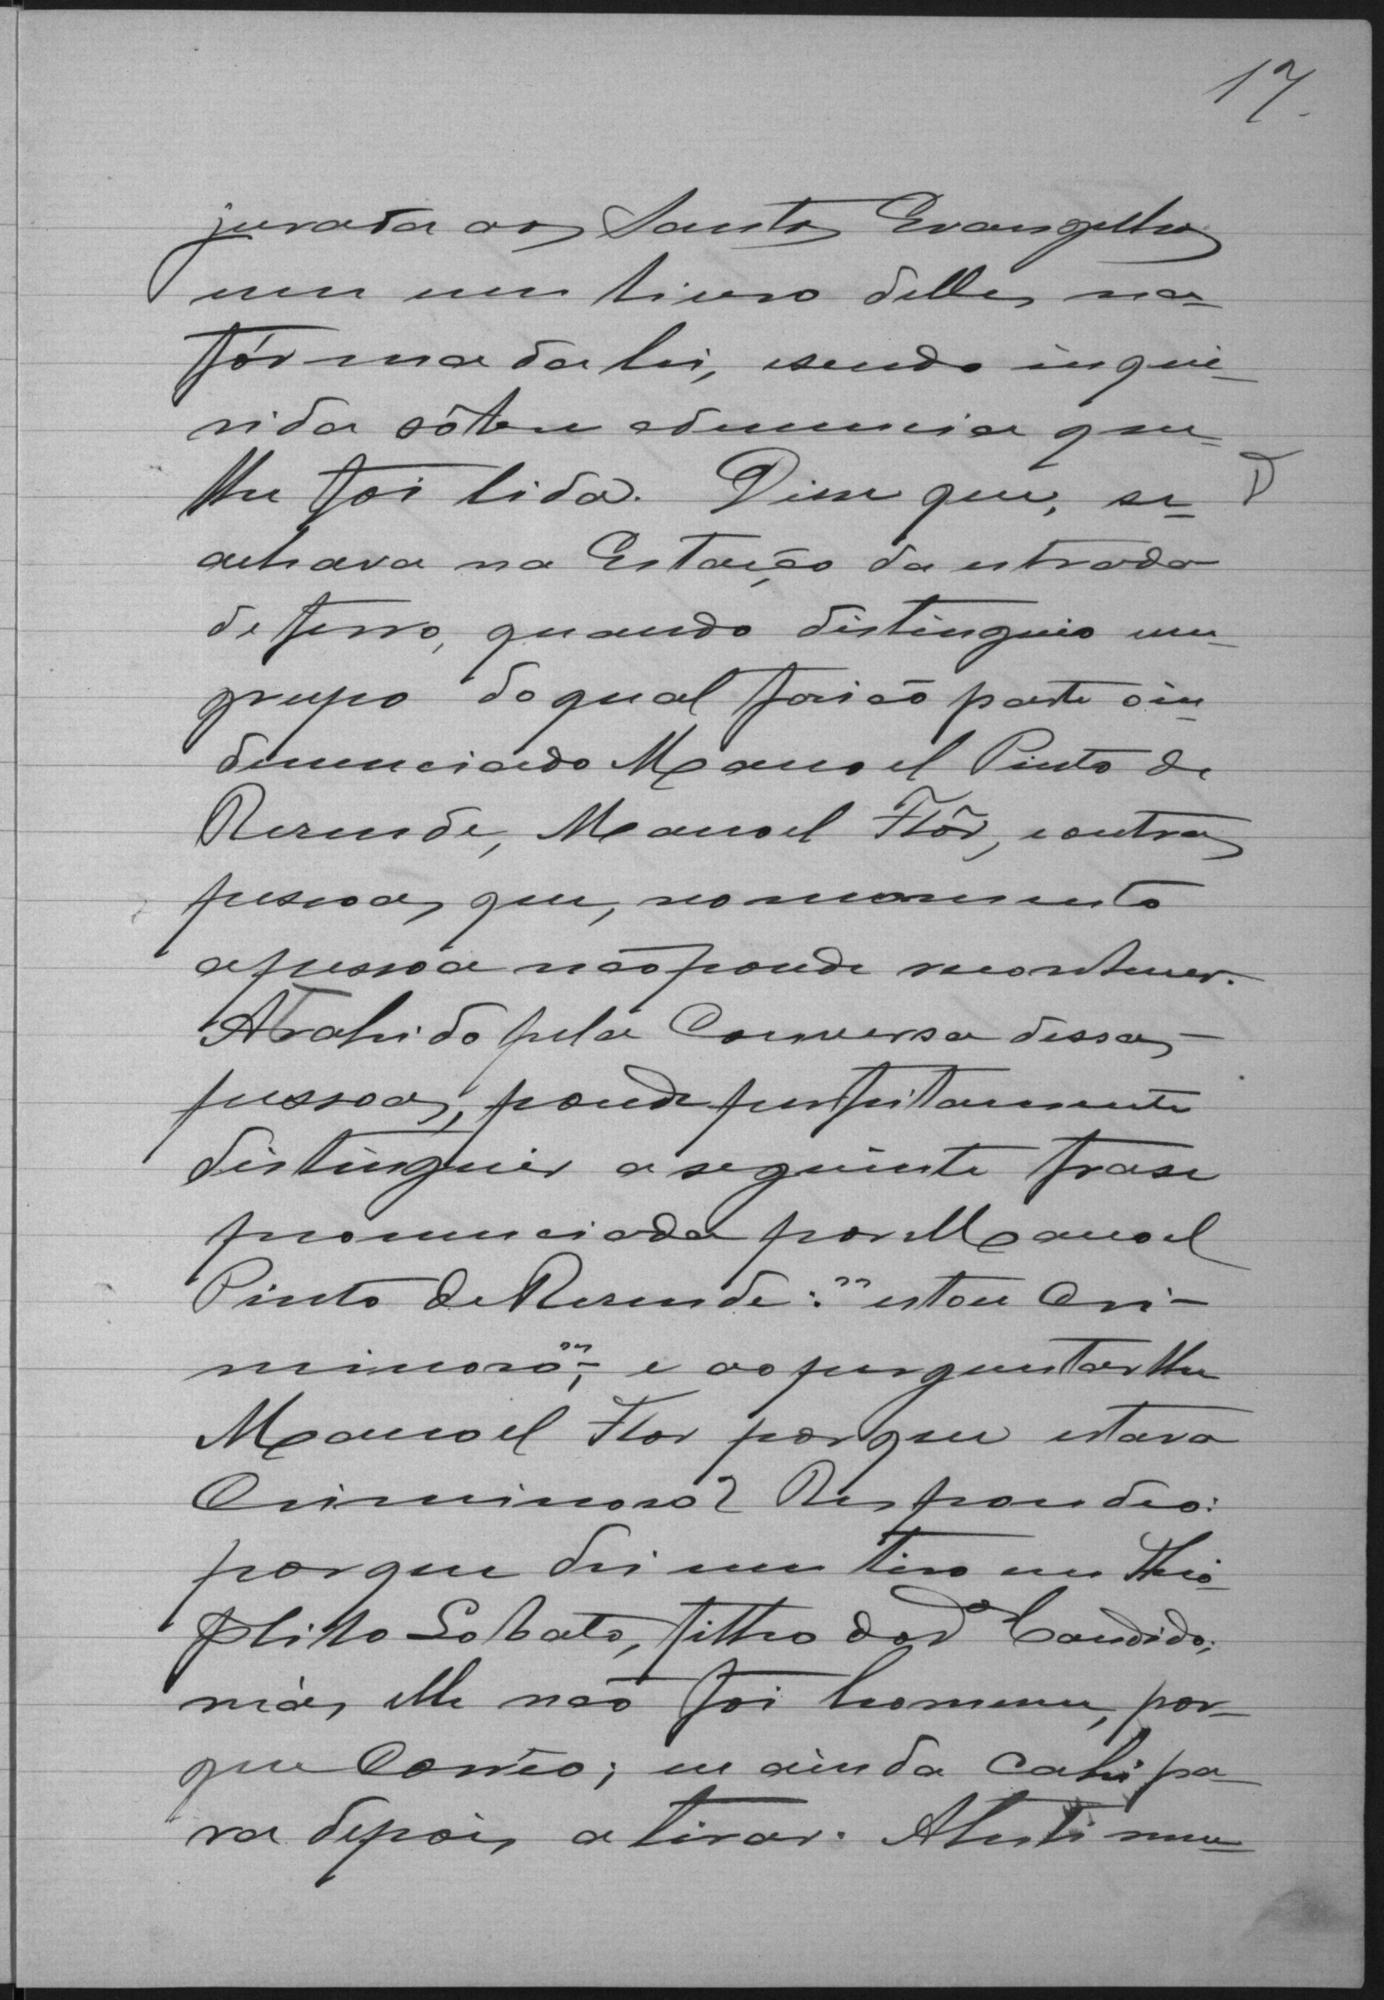 17.
jurada aos Santos Evangelhos
em um livro delles na
fórma da lei, e sendo inque-
rida sôbre a denuncia que
lhe foi lida. Disse que, se
D
achava na Estação da estrada
de ferro, quando distinguio um
grupo do qual fazião parte o in
denunciado Manoel Pinto de
Rezende, Manoel Flôr, e outras
pessoas, que, no momento
a pessoa não poude reconhecer.
Atrahido pela Conversa dessas
pessoas, poude perfeitamente
distinguir a seguinte frase
pronunciada por Manoel
Pinto de Rezende: "estou Cri-
minoso"; e ao perguntar lhe
Manoel Flor porque estava
Criminoso? Respondeo:
porque dei um tiro em Theo
philo Lobato, filho do Candido;
más elle não foi homem, por-
que Correo; eu ainda cahi pa-
ra depois atirar. A testimu-